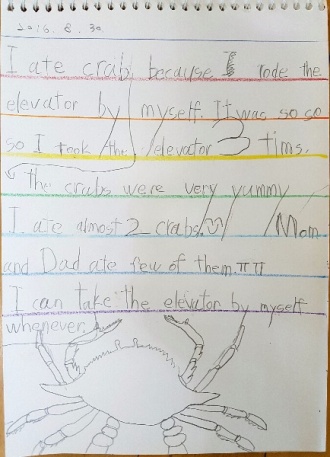 2016. 8. 30.
I ate crab, because I rode the
elevator by myself. It was so so
so I took the elevator 3 tims.
the crabs were very yummy
I ate almost 2 crabs. Mom
and Dad ate few of them.ㅠㅠ
I can take the elevator by myself
whenever.